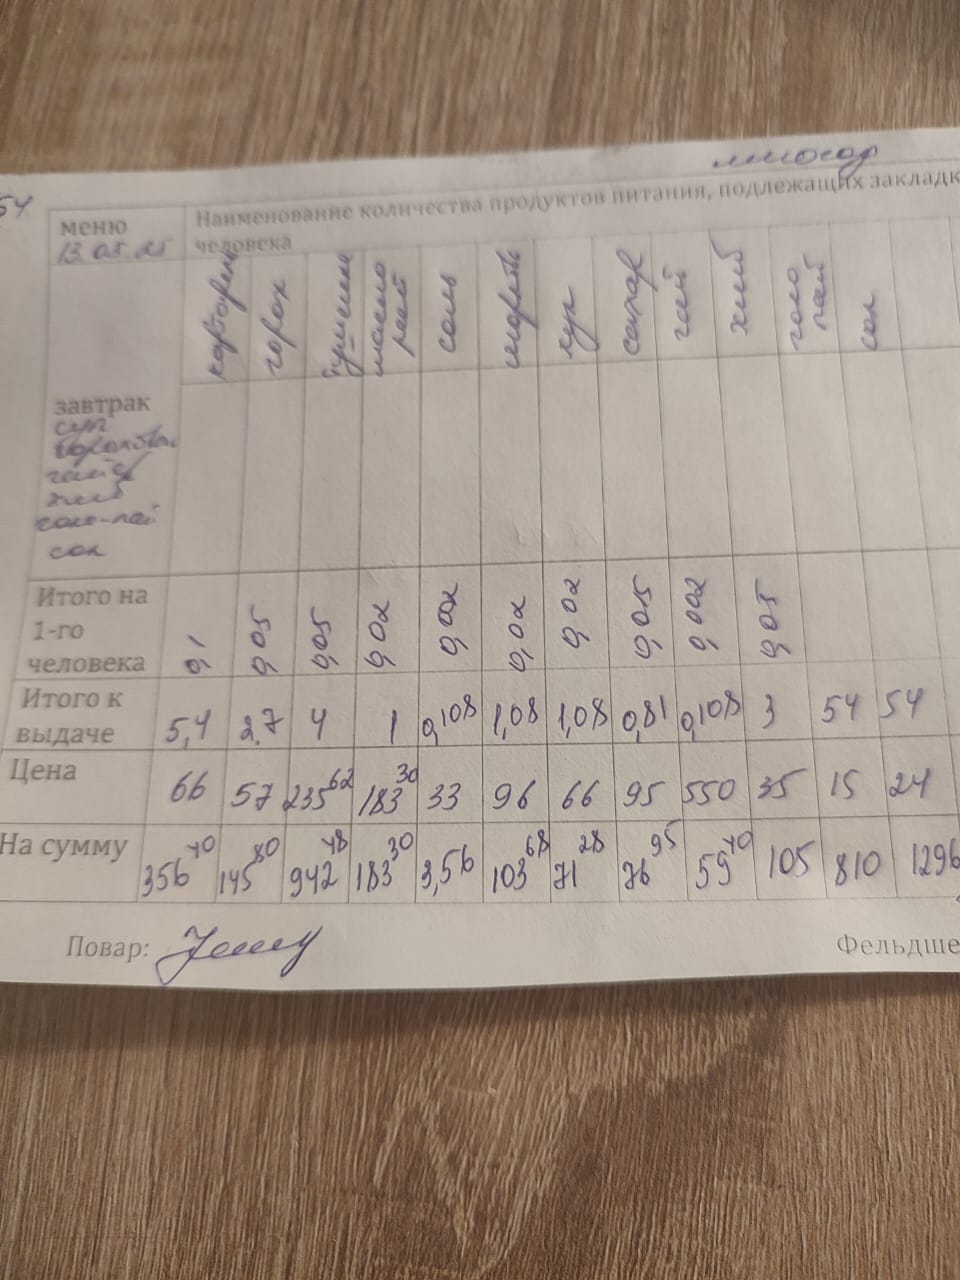 многод
54
меню
13.05.25
Наименование количества продуктов питания, подлежащих закладк
человека
картофель горох куриные масло раст соль морковь лук сахар чай хлеб чоко пай сок
завтрак
суп
гороховый
чай с/с
хлеб
чоко-пай
сок
Итого на
1-го
человека
0,1 0,05 0,05 0,02 0,002 0,02 0,02 0,015 0,002 0,05
Итого к
выдаче
5,4 2,7 4 1 0,108 1,08 1,08 0,81 0,108 3 54 54
Цена
66 57 235 62 183 30 33 96 66 95 550 35 15 24
На сумму
356 40 145 80 942 48 183 30 3,56 103 68 71 28 76 95 59 40 105 810 1296
Повар:
Фельдше